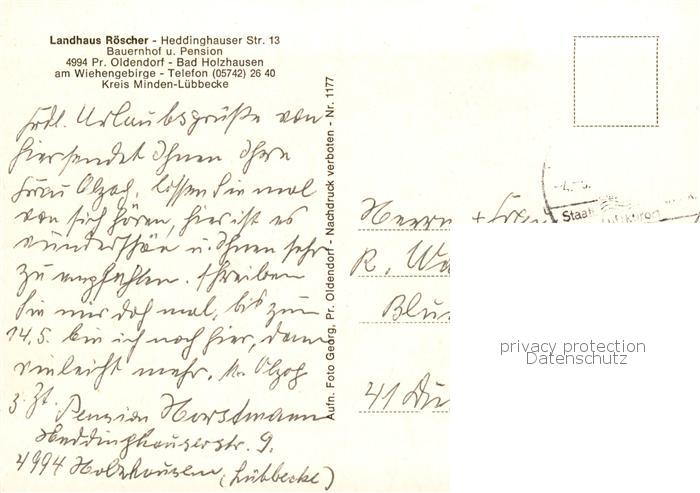 Landhaus Röscher - Heddinghauser Str. 13
Bauernhof u. Pension
4994 Pr. Oldendorf - Bad Holzhausen
am Wiehengebirge - Telefon (05742) 26 40
Kreis Minden-Lübbecke
Frdl. Urlaubsgrüße von
hier sendet Ihnen Ihre
Frau Olzog, lassen Sie mal
von sich hören, hier ist es
wunderschön u. Ihnen sehr
zu empfehlen. schreiben
Sie mir doch mal, bis zum
14.5. bin ich noch hier, dann
vielleicht mehr. Olzog
z. Zt. Pension Horstmann
Heddinghauserstr. 9.
4994 Holzhausen (Lübbecke)
Aufn. Foto Georg, Pr. Oldendorf - Nachdruck verboten - Nr. 1177
Staatl
Luftkurort
Herrn + Frau
R. Wa
Blu
41 Du
privacy protection
Datenschutz